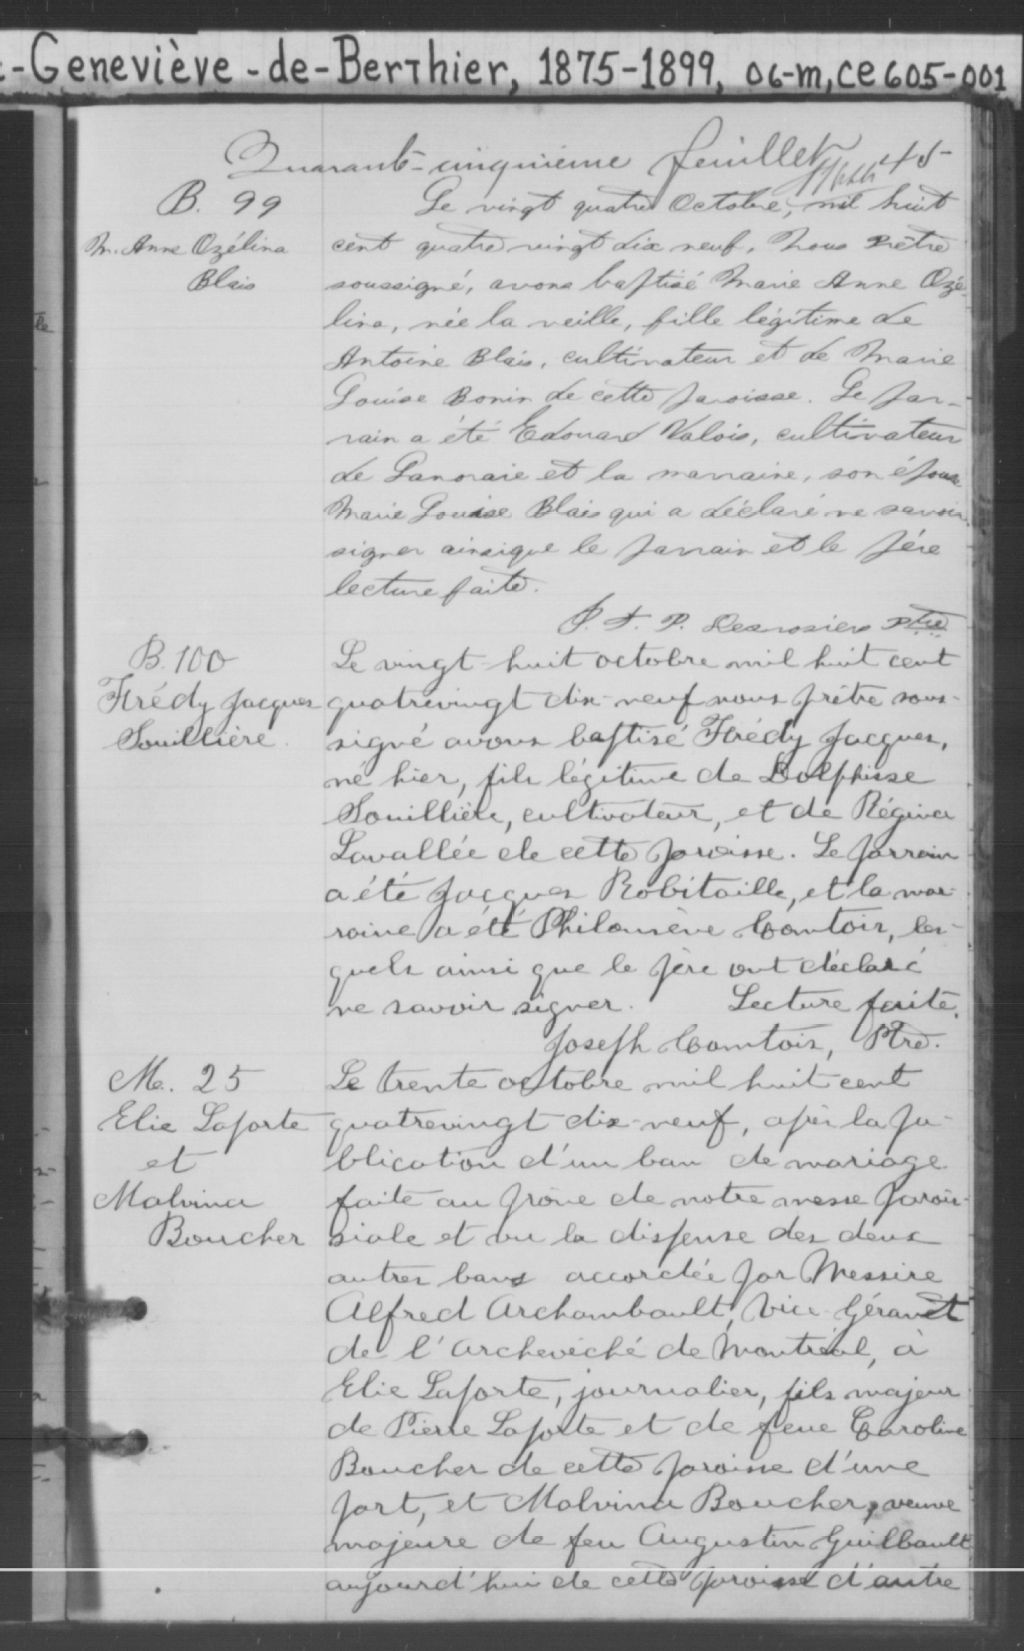 -Geneviève-de-Berthier, 1875-1899, 06-m,ce605-001
Quarante-cinquième feuillet 45
B. 99
M. Anne Ozélina
Blais
Le vingt quatre Octobre, mil huit
cent quatre vingt dix neuf, Nous Prêtre
soussigné, avons baptisé Marie Anne Ozé-
lina, née la veille, fille légitime de
Antoine Blais, cultivateur et de Marie
Louise Bonin de cette paroisse. Le par-
rain a été Edouard Valois, cultivateur
de Lanoraie et la marraine, son épouse
Marie Louise Blais qui a déclaré ne savoir
signer ainsi que le parrain et le père
lecture faite.
J. F. P. Desrosiers Ptre
B. 100
Frédy Jacques
Souillière.
Le vingt-huit octobre mil huit cent
quatrevingt dix-neuf nous prêtre sous-
signé avons baptisé Frédy Jacques,
né hier, fils légitime de Dolphisse
Souillière, cultivateur, et de Régina
Lavallée de cette paroisse. Le parrain
a été Jacques Robitaille, et la mar-
raine a été Philomène Comtois, les-
quels ainsi que le père ont déclaré
ne savoir signer. Lecture faite.
Joseph Comtois, Ptre.
M. 25
Elie Laporte
et
Malvina
Boucher
Le trente octobre mil huit cent
quatrevingt dix-neuf, après la pu-
blication d'un ban de mariage
faite au prône de notre messe parois-
siale et vu la dispense des deux
autres bans accordée par Messire
Alfred Archambault, Vice Gérant
de l'archevêché de Montréal, à
Elie Laporte, journalier, fils majeur
de Pierre Laporte et de feue Caroline
Boucher de cette paroisse d'une
part, et Malvina Boucher, veuve
majeure de feu Augustin Guilbault
aujourd'hui de cette paroisse d'autre